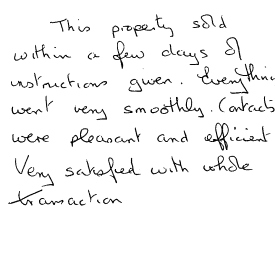 This property sold
within a few days of
instructions given. Everything
went very smoothly. Contacts
were pleasant and efficient
Very satisfied with whole
transaction